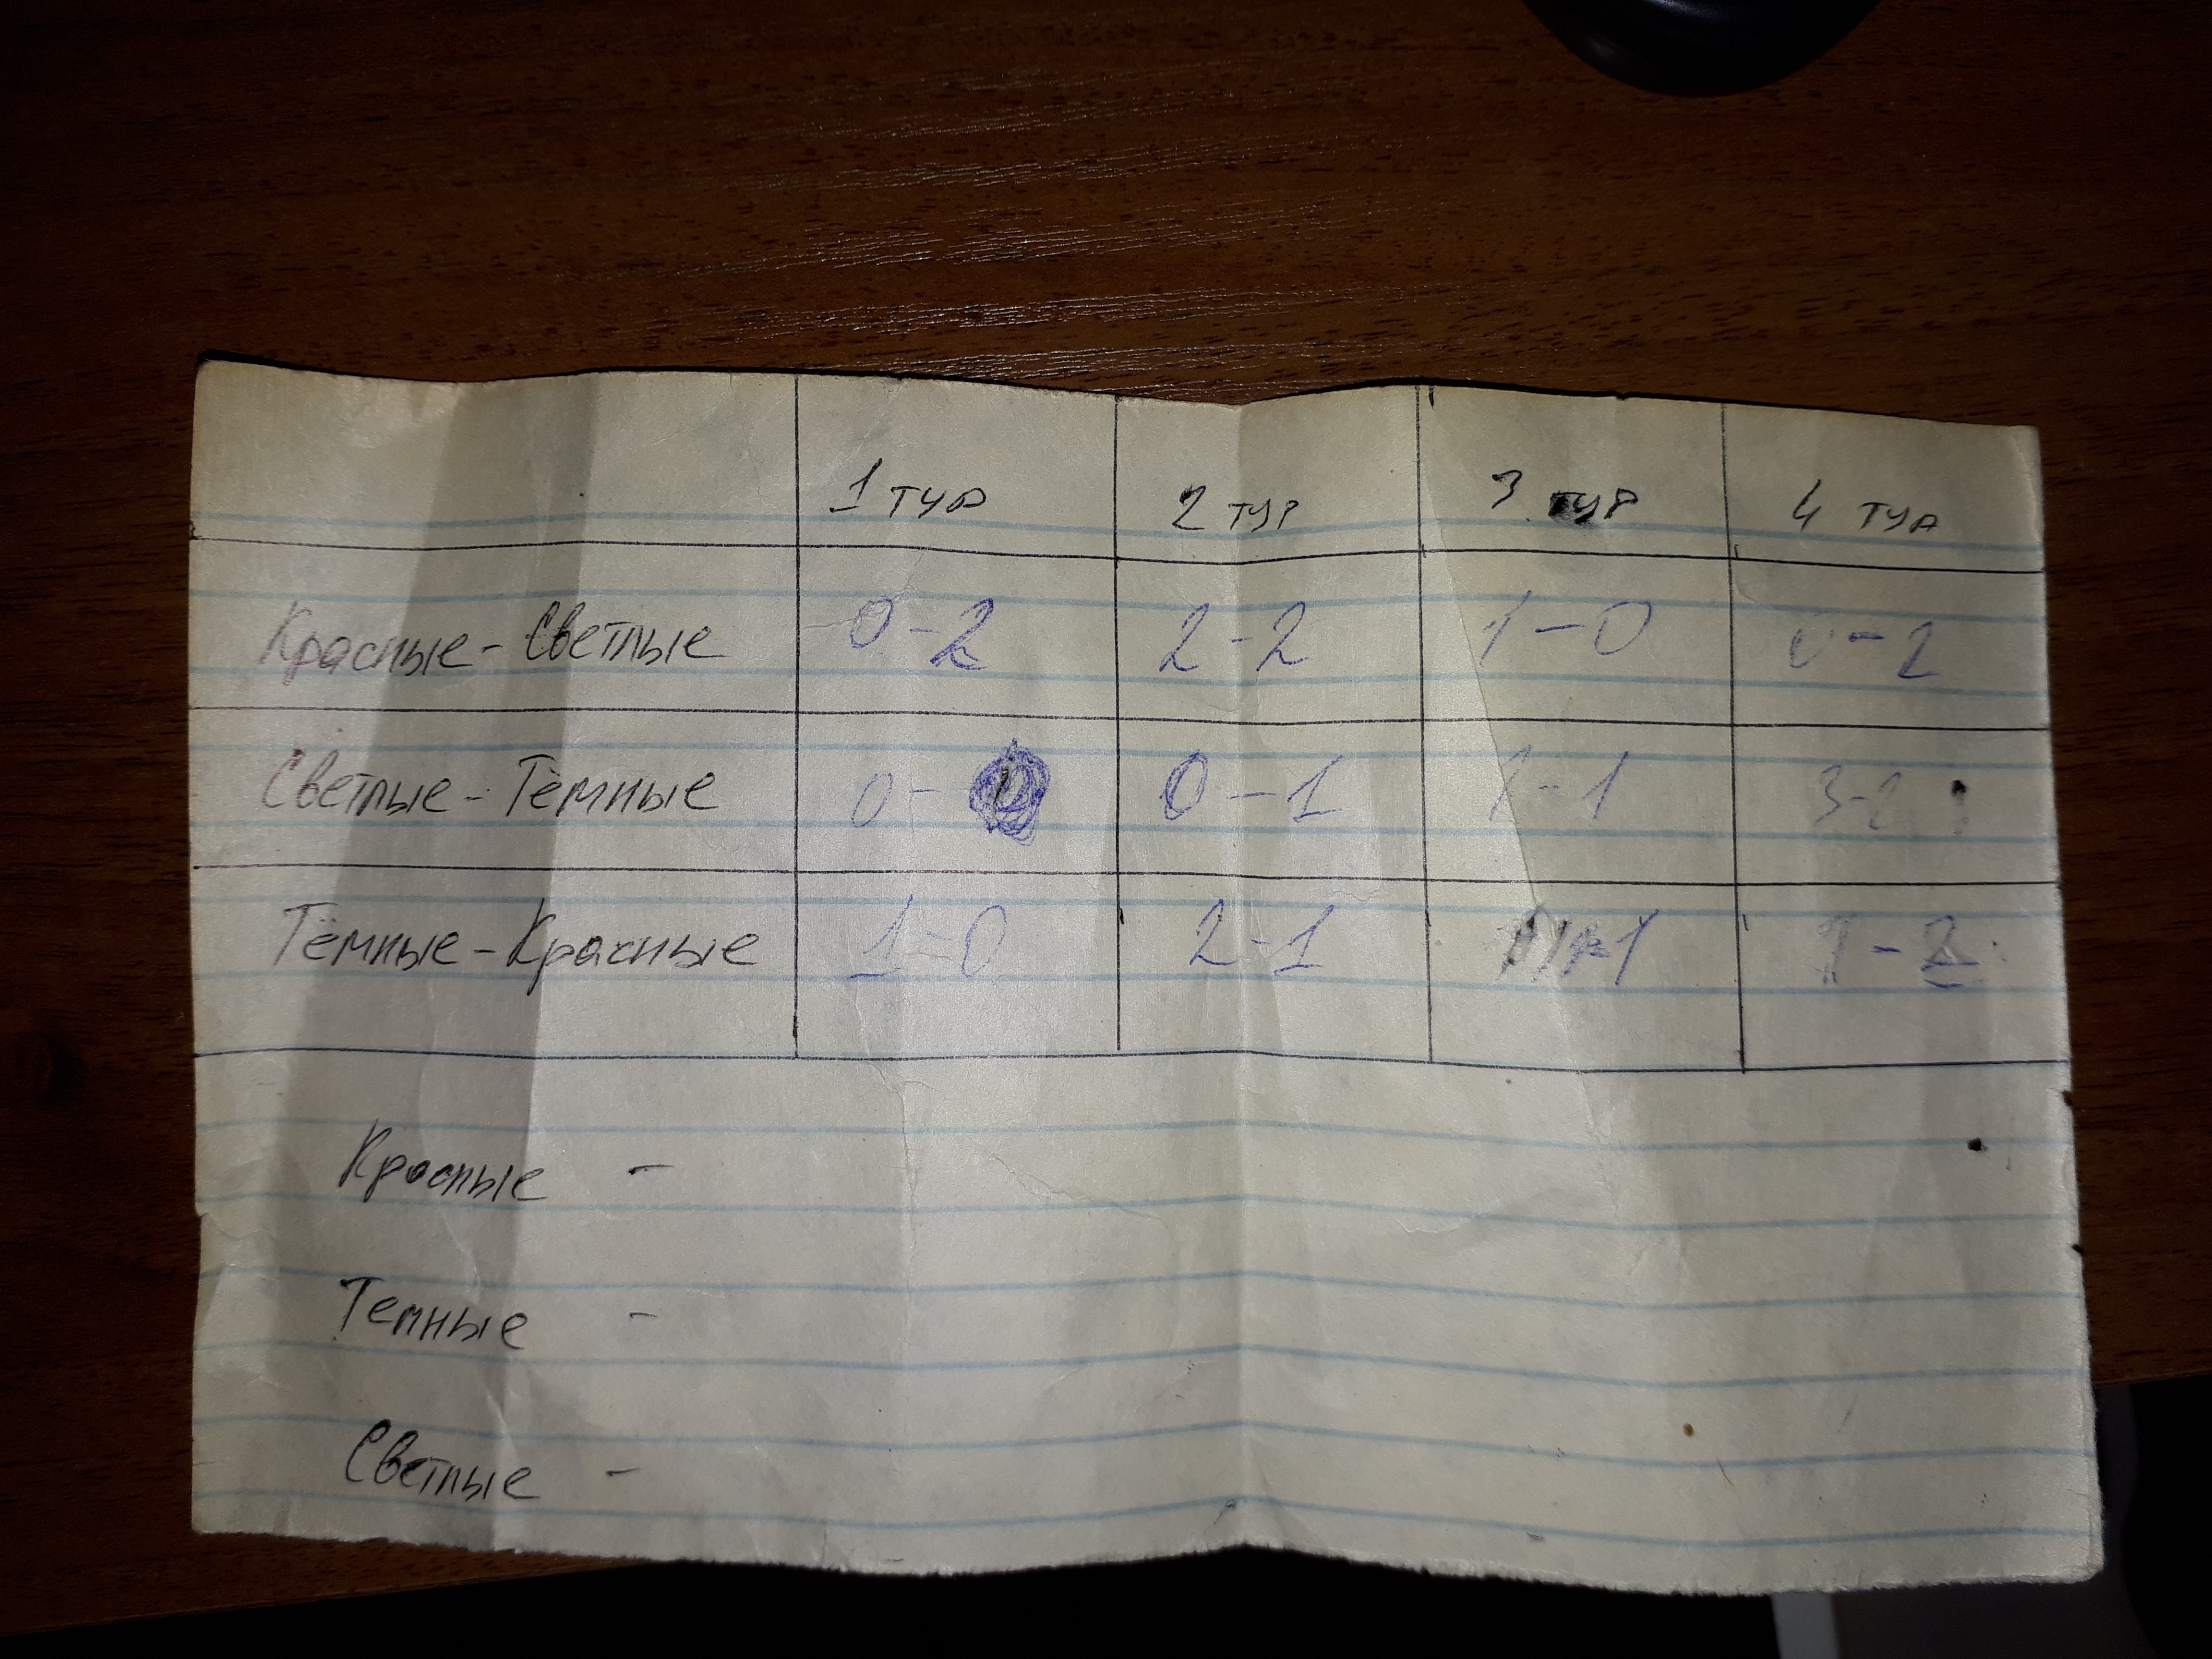 1 тур 2 тур 3 тур 4 тур
Красные - Светлые 0-2 2-2 1-0 0-2
Светлые - Тёмные 0- 0-1 1-1 3-2
Тёмные - Красные 1-0 2-1 1-2
Красные -
Темные -
Светлые -